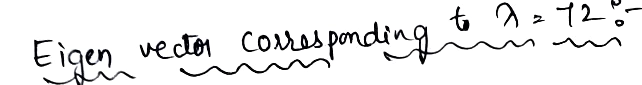 Eigen vector corresponding to λ = 72 :-